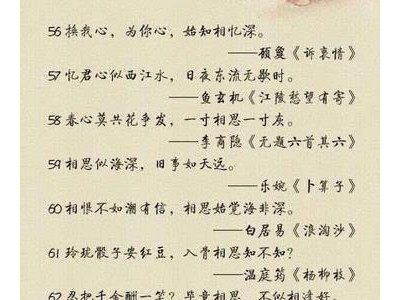 56 换我心，为你心，始知相忆深。
——顾敻《诉衷情》
57 忆君心似西江水，日夜东流无歇时。
——鱼玄机《江陵愁望有寄》
58 春心莫共花争发，一寸相思一寸灰。
——李商隐《无题六首其六》
59 相思似海深，旧事如天远。
——乐婉《卜算子》
60 相恨不如潮有信，相思始觉海非深。
——白居易《浪淘沙》
61 玲珑骰子安红豆，入骨相思知不知？
——温庭筠《杨柳枝》
62 忍把千金酬一笑？毕竟相思，不似相逢好。